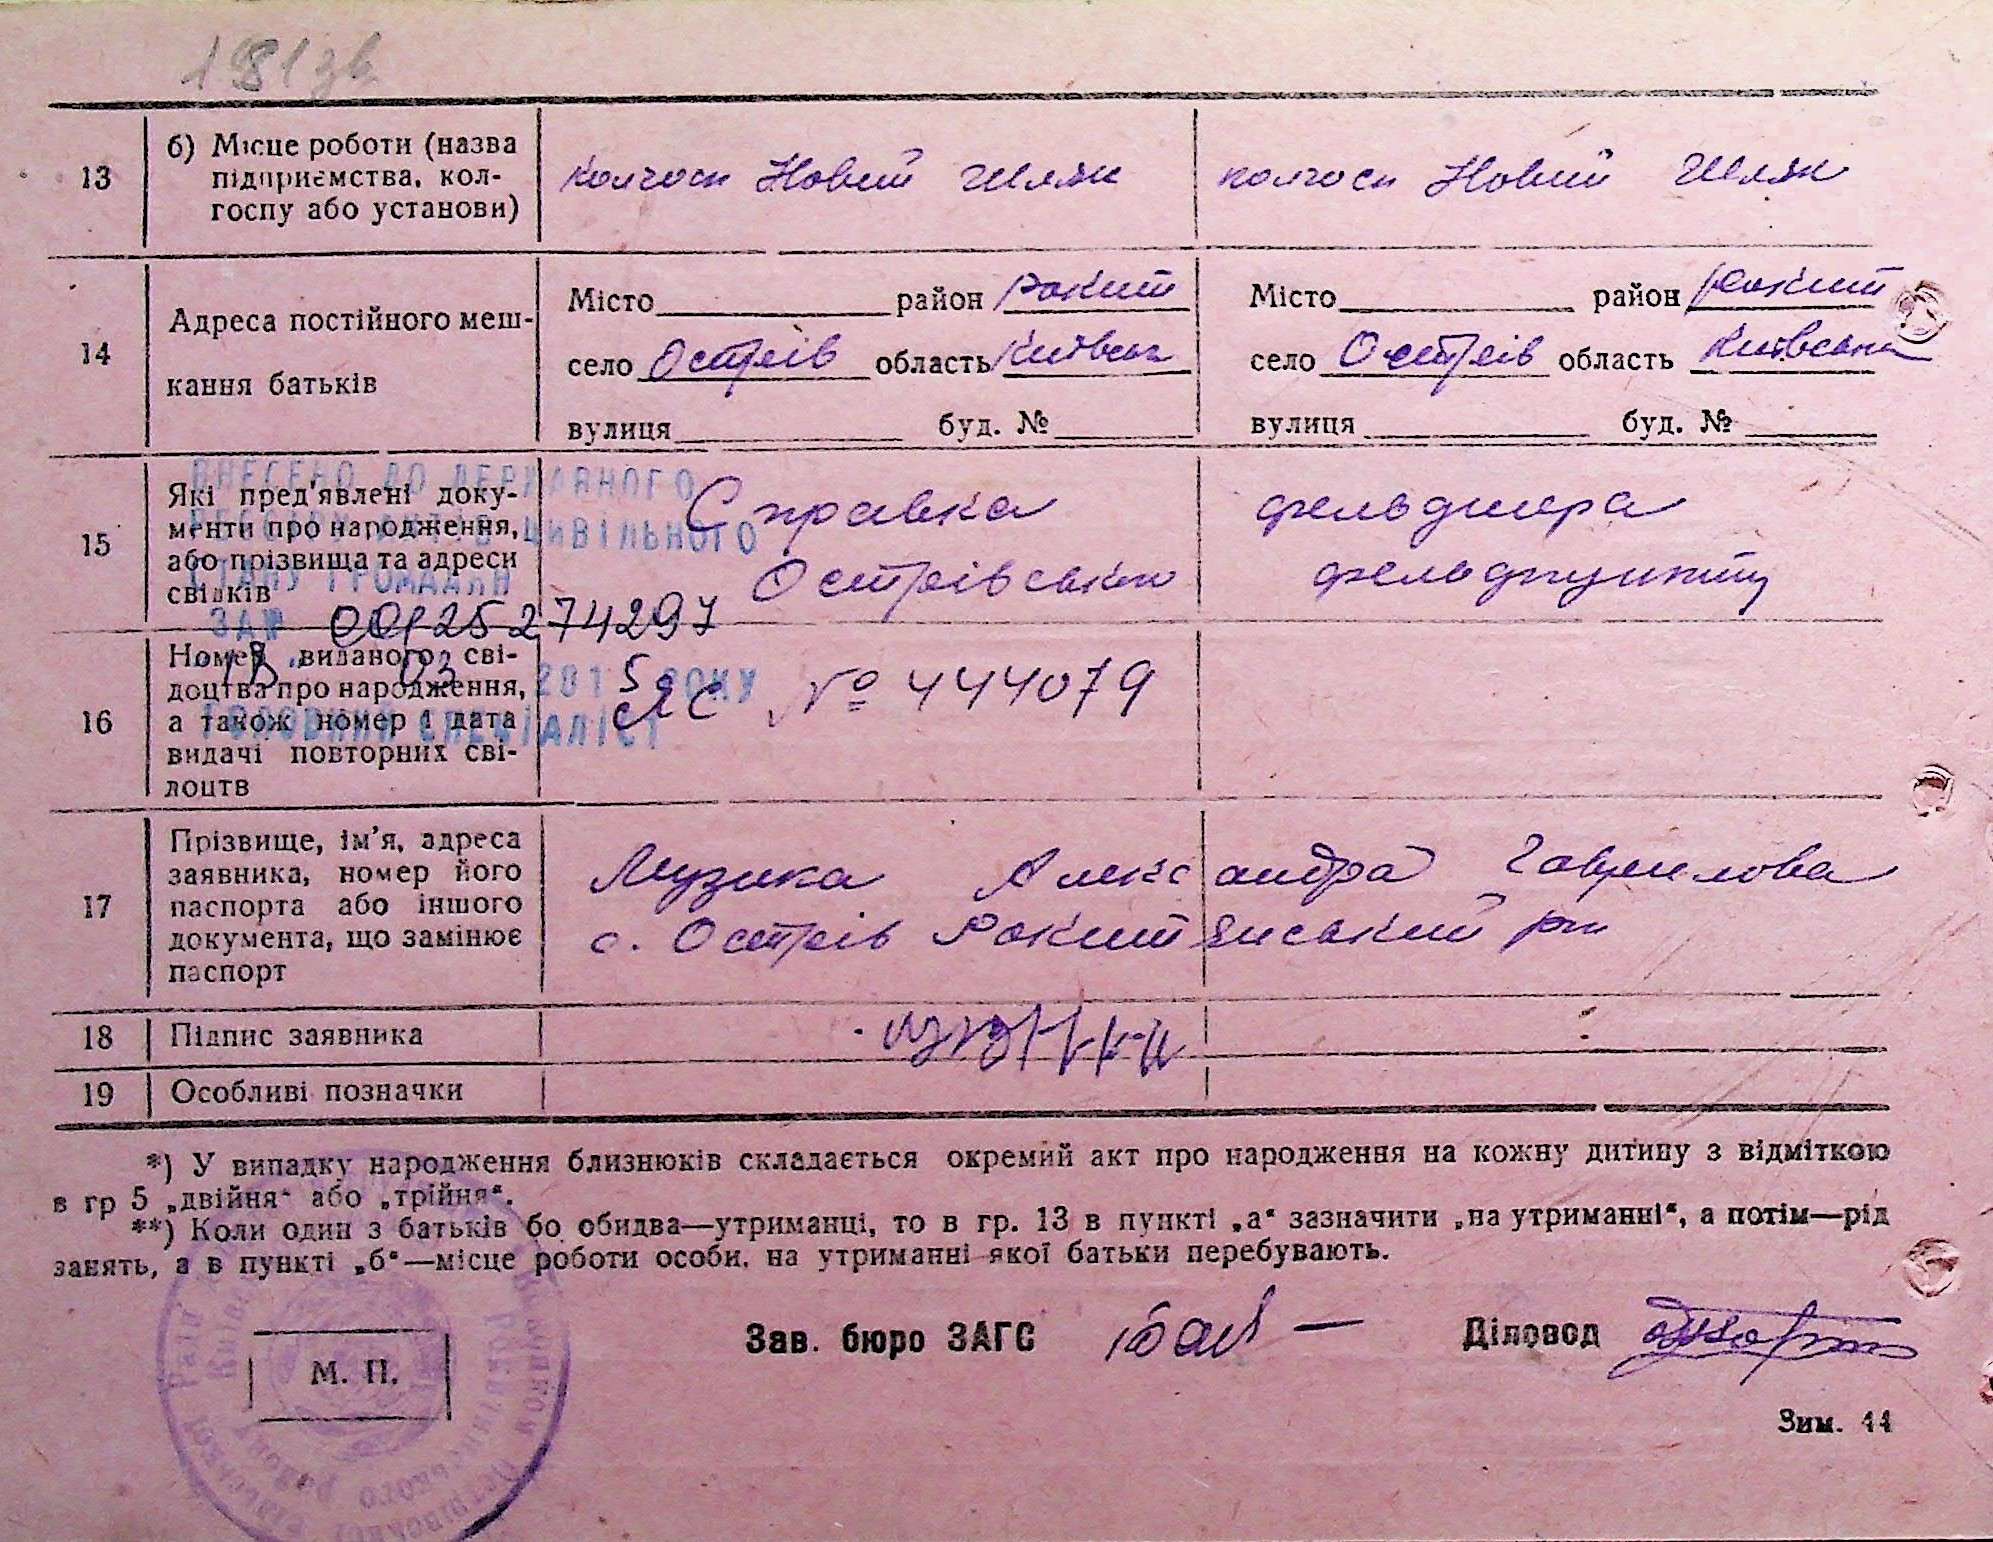 181 зв
13
б) Місце роботи (назва
підприємства, кол-
госпу або установи)
колгосп Новий Шлях
колгосп Новий Шлях
14
Адреса постійного меш-
кання батьків
Місто район Рокит
село Острів область Київськ
вулиця буд. №
Місто район Рокит
село Острів область Київська
вулиця буд. №
15
Які пред'явлені доку-
менти про народження,
або прізвища та адреси
свідків
Справка фельдшера
Острівського фельдпункту
ВНЕСЕНО ДО ДЕРЖАВНОГО
РЕЄСТРУ АКТІВ ЦИВІЛЬНОГО
СТАНУ ГРОМАДЯН
ЗА № 00125274297
13 03 2015 РОКУ
ГОЛОВНИЙ СПЕЦІАЛІСТ
16
Номер виданого сві-
доцтва про народження,
а також номер і дата
видачі повторних сві-
доцтв
ЯС № 444079
17
Прізвище, ім'я, адреса
заявника, номер його
паспорта або іншого
документа, що замінює
паспорт
Музика Александра Гаврилова
с. Острів Рокитянський рн
18
Підпис заявника
19
Особливі позначки
*) У випадку народження близнюків складається окремий акт про народження на кожну дитину з відміткою
в гр 5 „двійня“ або „трійня“.
**) Коли один з батьків бо обидва—утриманці, то в гр. 13 в пункті „а“ зазначити „на утриманні“, а потім—рід
занять, а в пункті „б“—місце роботи особи, на утриманні якої батьки перебувають.
Зав. бюро ЗАГС
Діловод
М. П.
Зим. 44